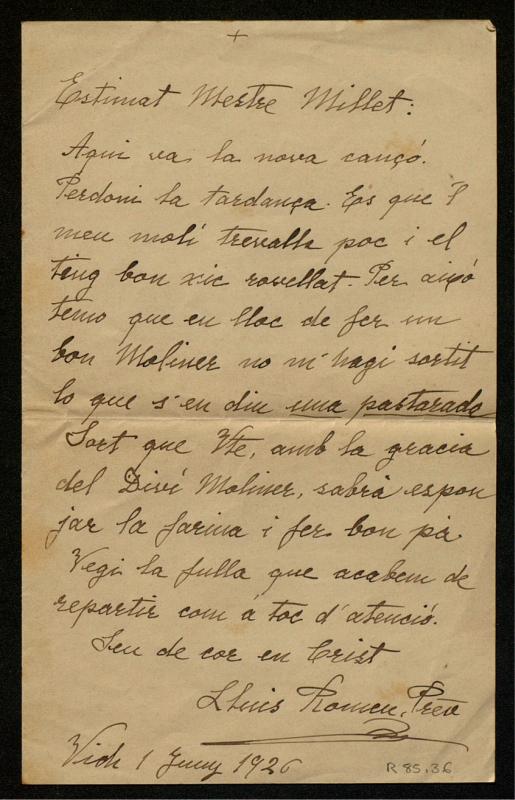 +
Estimat Mestre Millet:
Aqui va la nova cançó.
Perdoni la tardança. Es que l
meu molí trevalla poc i el
ting bon xic rovellat. Per aixó
temo que en lloc de fer un
bon Moliner no m'hagi sortit
lo que s'en diu una pastarada
Sort que Vte, amb la gracia
del Diví Moliner, sabrá espon
jar la farina i fer bon pá.
Vegi la fulla que acabem de
repartir com á toc d'atenció.
Seu de cor en Crist
Lluis Romeu, Prev
Vich 1 Juny 1926
R 85.36